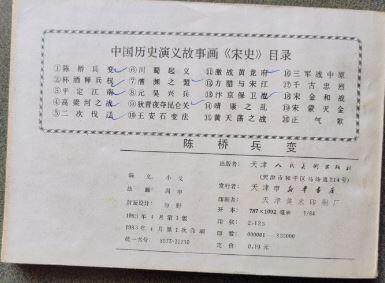 中国历史演义故事画《宋史》目录
①陈桥兵变 ⑥川蜀起义 ⑪激战黄龙府 ⑯三军战中原
②杯酒释兵权 ⑦澶渊之盟 ⑫方腊与宋江 ⑰千古忠烈
③平定江南 ⑧元昊兴兵 ⑬汴京保卫战 ⑱宋金和战
④高梁河之战 ⑨狄青夜夺昆仑关 ⑭靖康之乱 ⑲宋蒙灭金
⑤二次伐辽 ⑩王安石变法 ⑮黄天荡之战 ⑳正气歌
陈桥兵变
出版者: 天津人民美术出版社
(天津市和平区马场道214号)
发行者: 天津市新华书店
印刷者: 天津美术印刷厂
开本: 787×1092 毫米 1/64
印张: 2.125
定价: 0.19元
封面设计:
1983年4月第1版
1983年4月第1次印刷
统一书号